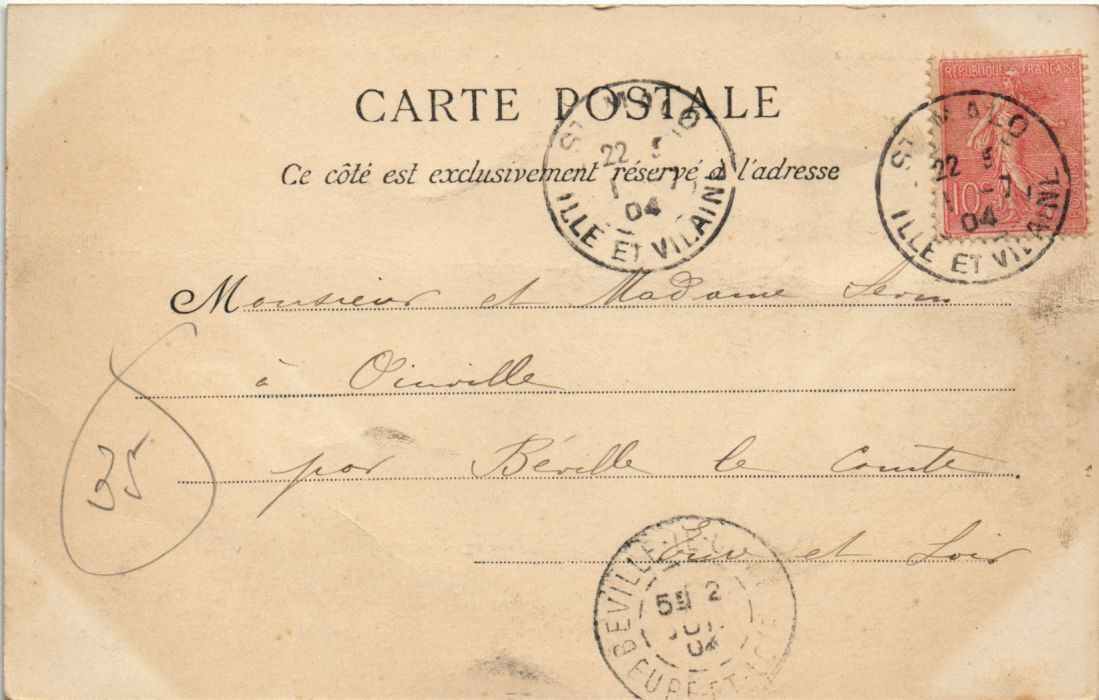 CARTE POSTALE
Ce côté est exclusivement réservé à l'adresse
RÉPUBLIQUE FRANÇAISE
10
ST MALO
22 5
1 -7
04
ILLE ET VILAINE
ST MALO
22 5
1 -7
04
ILLE ET VILAINE
Monsieur et Madame
à Oinville
par Béville le Comte
Eure et Loir
35
BEVILLE-LE-
5E 2
JUIL
04
EURE-ET-LOIR